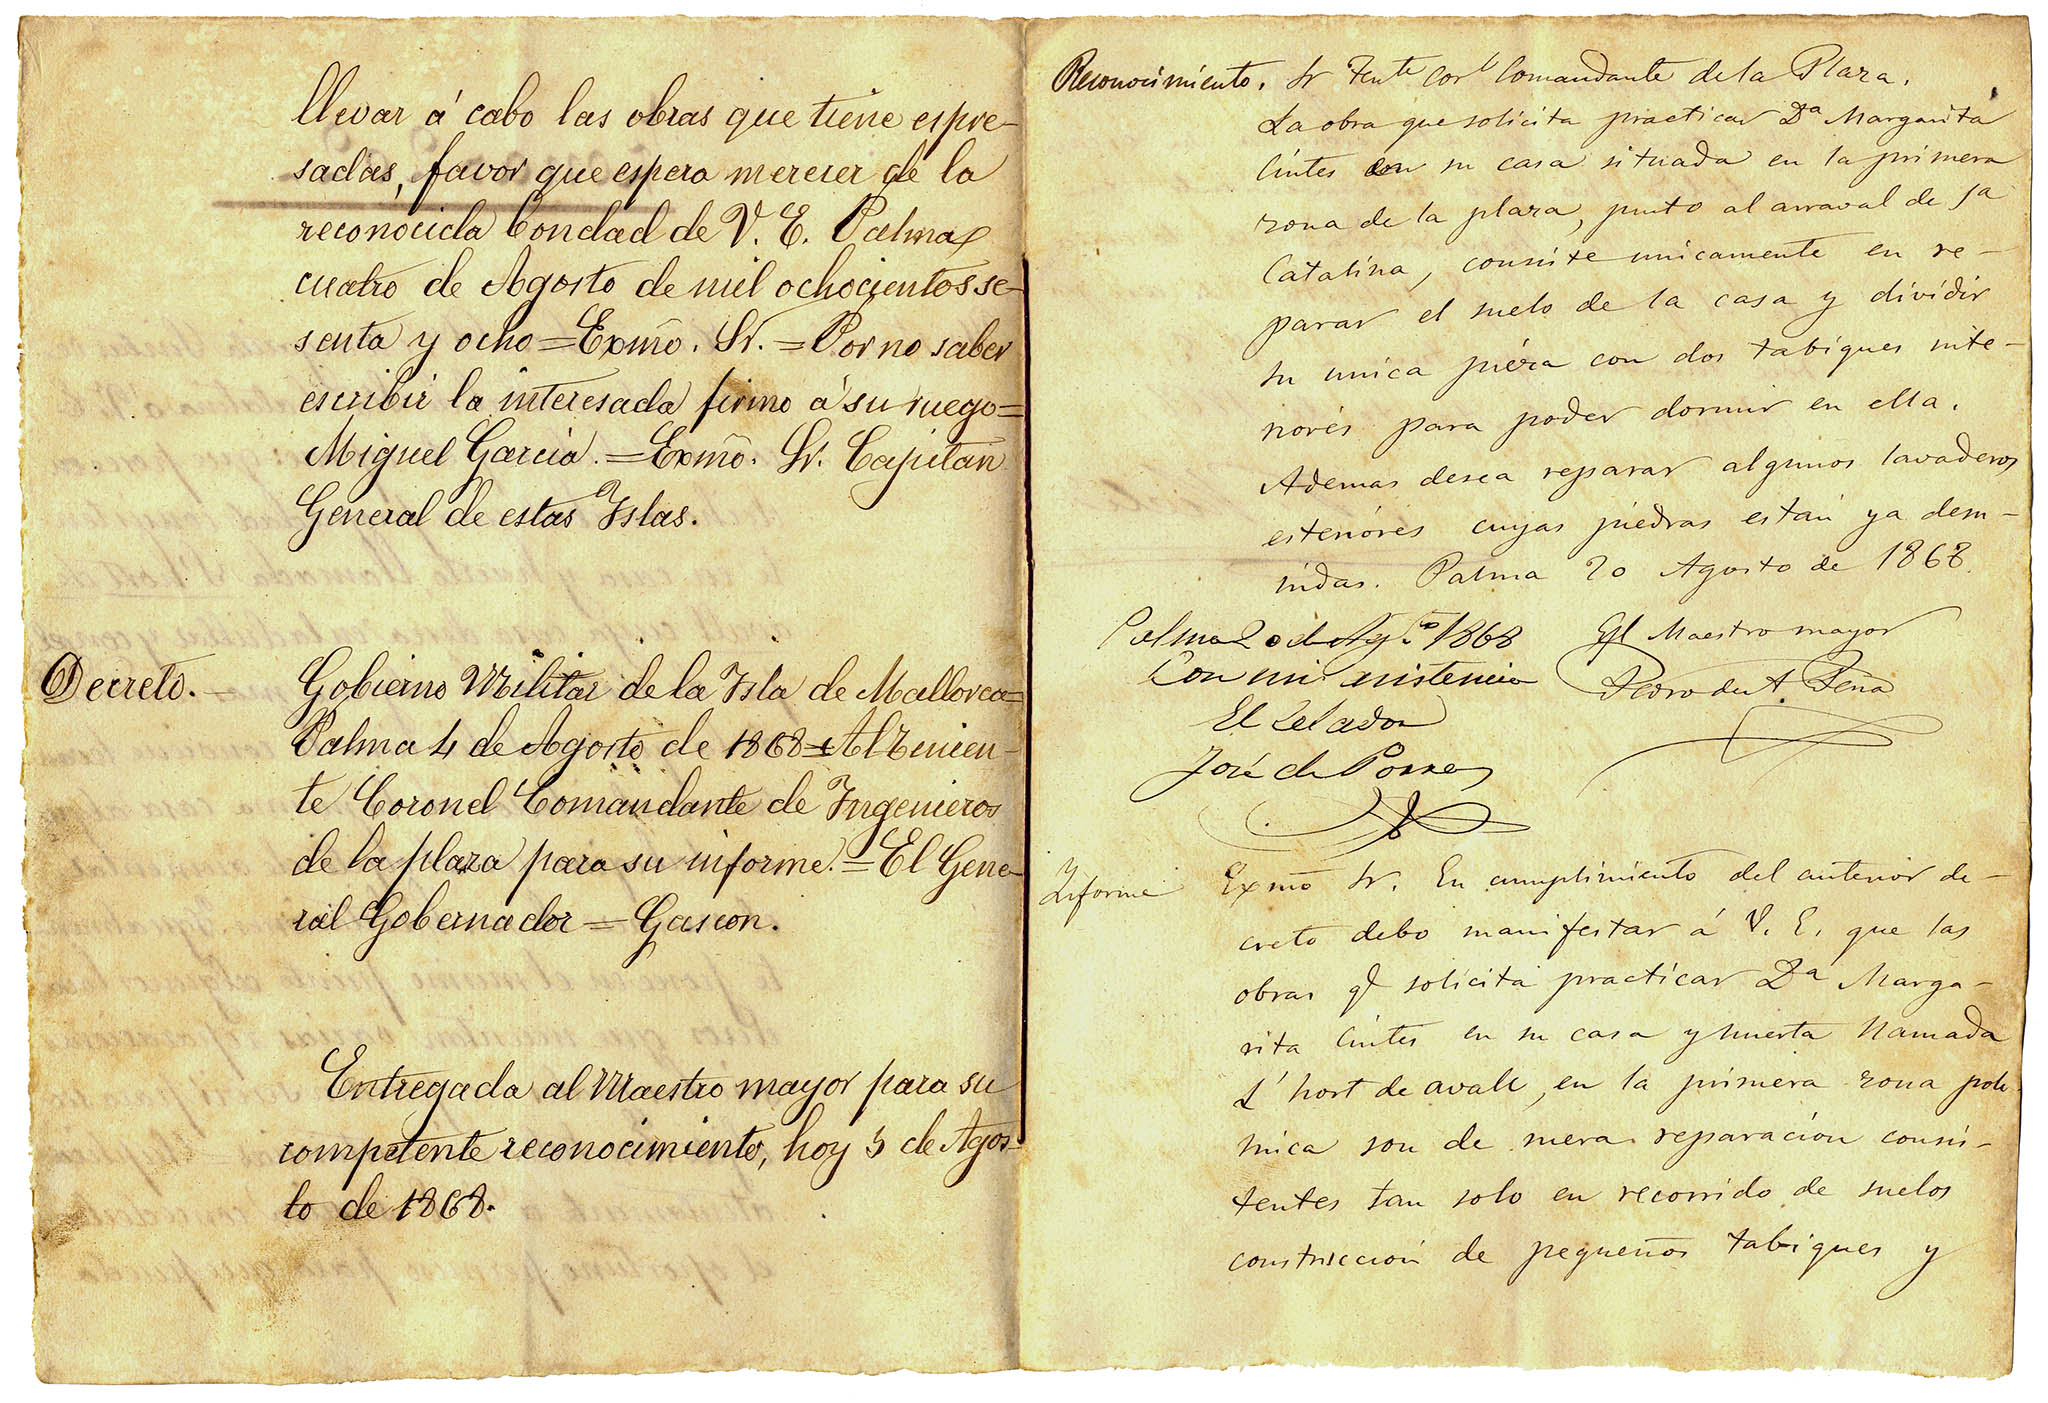 llevar á cabo las obras que tiene espre-
sadas, favor que espera merecer de la
reconocida bondad de V. E. Palma
cuatro de Agosto de mil ochocientos se-
senta y ocho = Exmo. Sr. = Por no saber
escribir la interesada firmo á su ruego =
Miguel García. = Exmo. Sr. Capitan
General de estas Islas.
Decreto. - Gobierno Militar de la Isla de Mallorca =
Palma 4 de Agosto de 1868 = Al Tenien-
te Coronel Comandante de Ingenieros
de la plaza para su informe. = El Gene-
ral Gobernador = Gascon.
Entregada al Maestro mayor para su
competente reconocimiento, hoy 5 de Agos-
to de 1868.
Reconocimiento. Sr Tente Corl Comandante de la Plaza.
La obra que solicita practicar Da Margarita
Cintes en su casa situada en la primera
zona de la plaza, junto al arraval de Sa
Catalina, consiste unicamente en re-
parar el suelo de la casa y dividir
su unica piéza con dos tabiques inte-
riorés para poder dormir en ella.
Ademas desea reparar algunos lavaderos
esteriórés cuyas piedras están ya desu-
nidas. Palma 20 Agosto de 1868.
Palma 20 de Agto 1868
Con mi asistencia
El Celador
José de Porras
El Maestro mayor
Pedro de A. Peña
Informe Exmo Sr. En cumplimiento del anterior de-
creto debo manifestar á V. E. que las
obras q solicita practicar Da Marga-
rita Cintes en su casa y huerta llamada
L' hort de avall, en la primera zona pole-
mica son de mera reparación consis-
tentes tan solo en recorrido de suelos
construcción de pequeños tabiques y